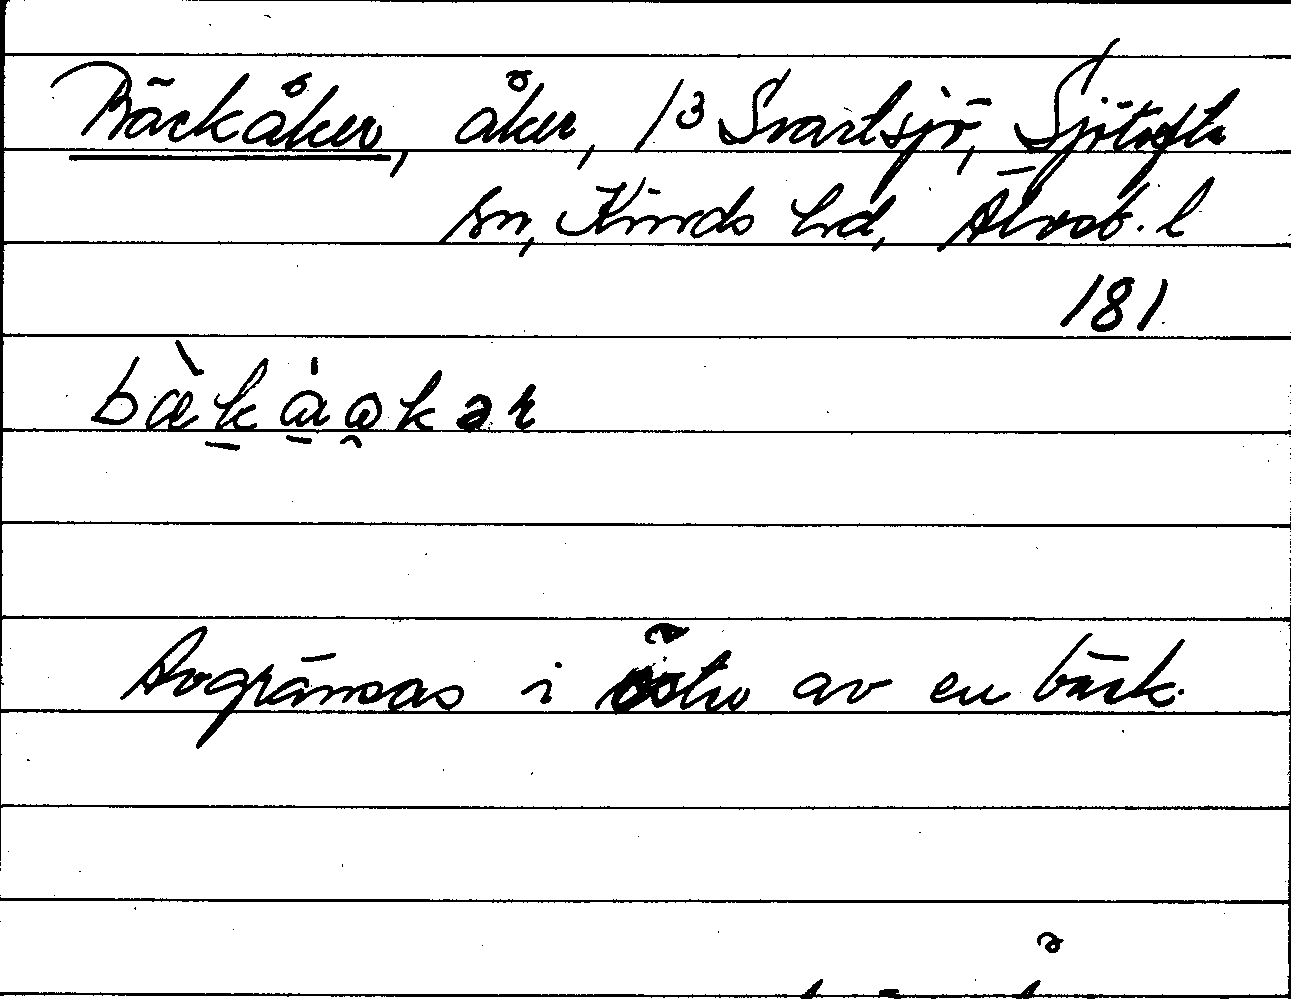 Bäckåker, åker, 1³ Svartsjö, Sjötofta
sn, Kinds hd, Älvsb. l
181
bæ̀k̠ɑ̠̍ɷ̯kər
Avgränsas i öster av en bäck.